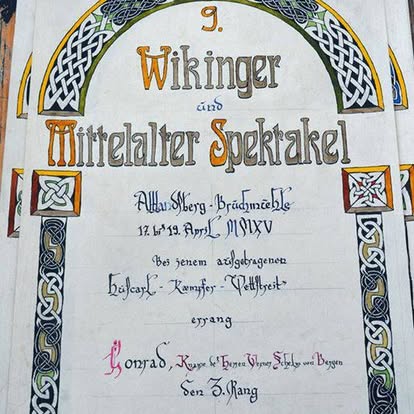 9.
Wikinger
und
Mittelalter Spektakel
Altlandsberg - Bruchmühle
17. bis 19. April MMXV
Bei jenem aufgetragenen
Huscarl - Kaempfer - Wettstreit
errang
Konrad, Knappe des Herren Werner Schelm von Bergen
den 3. Rang